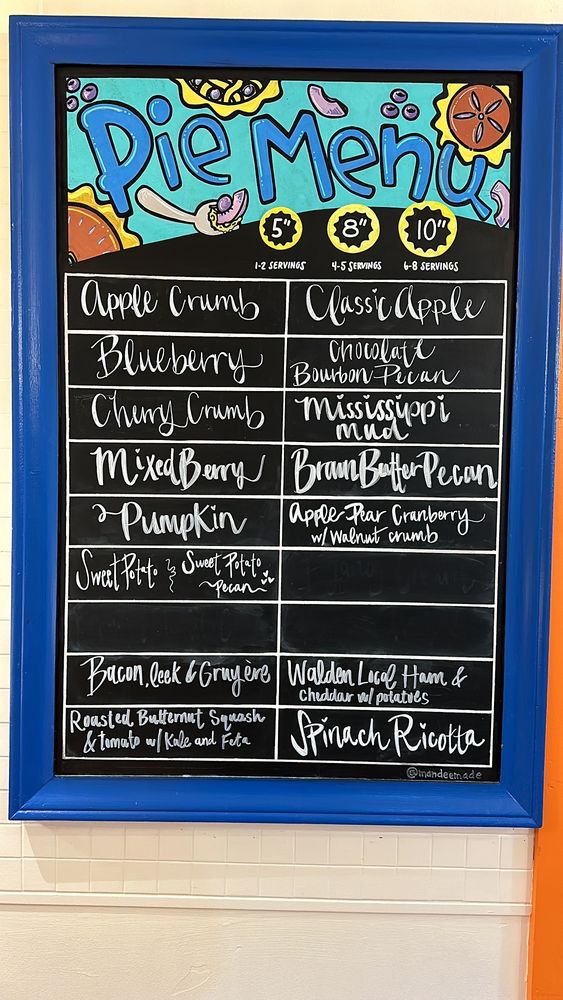 Pie Menu
5" 8" 10"
1-2 SERVINGS 4-5 SERVINGS 6-8 SERVINGS
Apple Crumb
Classic Apple
Blueberry
Chocolate
Bourbon Pecan
Cherry Crumb
Mississippi
mud
Mixed Berry
Brown Butter Pecan
Pumpkin
Apple Pear Cranberry
w/ Walnut crumb
Sweet Potato & Sweet Potato
Pecan
Bacon, leek & Gruyère
Walden Local Ham &
Cheddar w/ potatoes
Roasted Butternut Squash
& tomato w/ Kale and Feta
Spinach Ricotta
@mandeemade